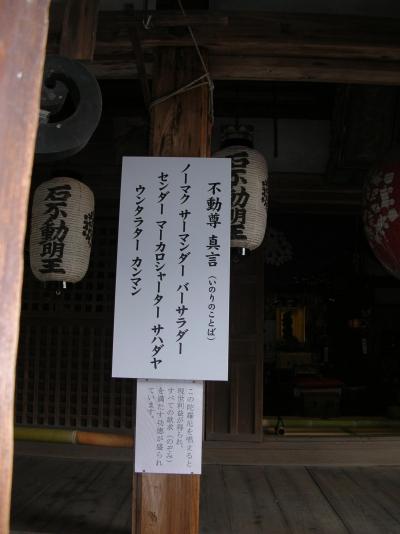 不動尊 真言（いのりのことば）
ノーマク サーマンダー バーサラダー
センダー マーカロシャーター サハダヤ
ウンタラター カンマン
この陀羅尼を唱えると
現世利益が得られ、
すべての願求（のぞみ）
を満たす功徳が盛られ
ています。
石不動明王
石不動明王